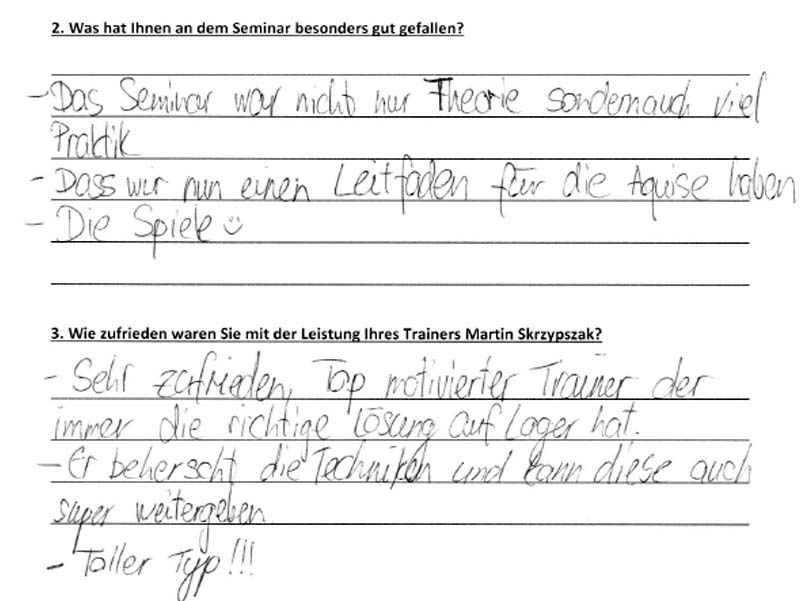 2. Was hat Ihnen an dem Seminar besonders gut gefallen?
- Das Seminar war nicht nur Theorie sondern auch viel
Praktik
- Dass wir nun einen Leitfaden für die Aquise haben
- Die Spiele ☺
3. Wie zufrieden waren Sie mit der Leistung Ihres Trainers Martin Skrzypszak?
- Sehr zufrieden, Top motivierter Trainer der
immer die richtige Lösung auf Lager hat.
- Er beherscht die Techniken und kann diese auch
super weitergeben
- Toller Typ!!!